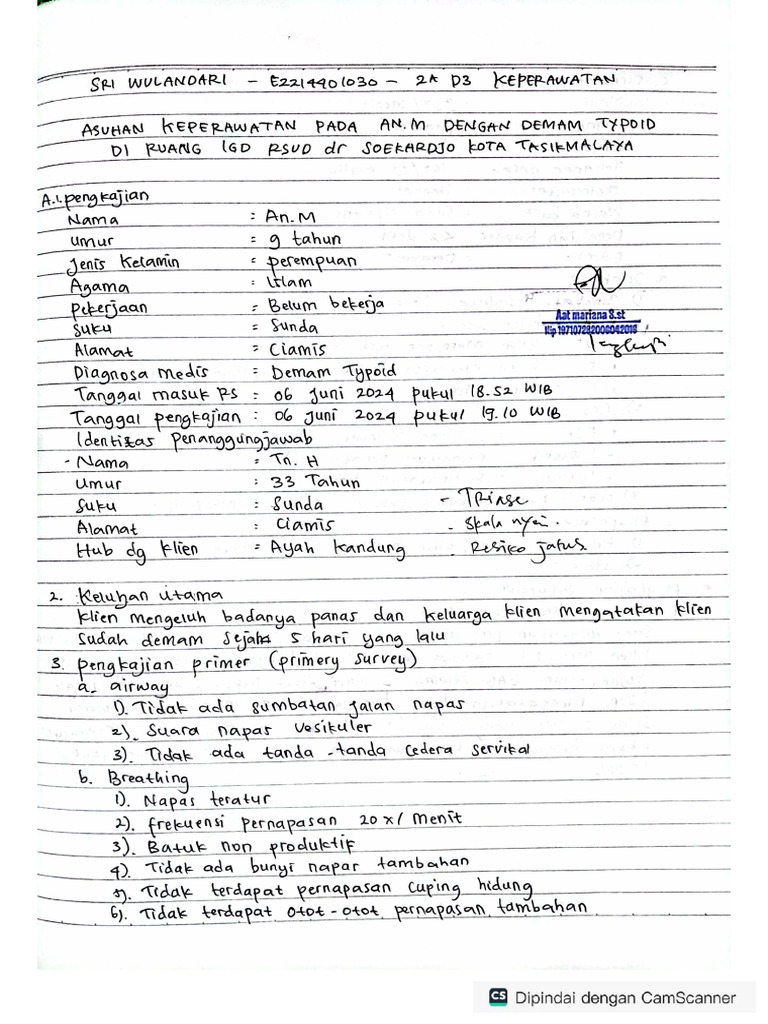 SRI WULANDARI - E2214401030 - 2A D3 KEPERAWATAN
ASUHAN KEPERAWATAN PADA AN.M DENGAN DEMAM TYPOID
DI RUANG IGD RSUD dr SOEKARDJO KOTA TASIKMALAYA
A.1.pengkajian
Nama : An.M
Umur : 9 tahun
Jenis Kelamin : perempuan
Agama : Islam
Pekerjaan : Belum bekerja
Suku : Sunda
Aat mariana S.st
Nip 197107282006042018
Alamat : Ciamis
Diagnosa medis : Demam Typoid
Tanggal masuk RS : 06 Juni 2024 pukul 18.52 WIB
Tanggal pengkajian : 06 Juni 2024 pukul 19.10 WIB
Identitas Penanggungjawab
- Nama : Tn. H
Umur : 33 Tahun
Suku : Sunda - Triase
Alamat : Ciamis - Skala nyeri.
Hub dg klien : Ayah kandung - Resiko jatuh
2. Keluhan utama
Klien mengeluh badanya panas dan keluarga klien mengatakan klien
sudah demam sejak 5 hari yang lalu
3. pengkajian primer (primery survey)
a. airway
1). Tidak ada sumbatan jalan napas
2). Suara napas vesikuler
3). Tidak ada tanda -tanda cedera servikal
b. Breathing
1). Napas teratur
2). frekuensi pernapasan 20 x/ menit
3). Batuk non produktif
4). Tidak ada bunyi napar tambahan
5). Tidak terdapat pernapasan cuping hidung
6). Tidak terdapat otot - otot pernapasan tambahan
CS Dipindai dengan CamScanner